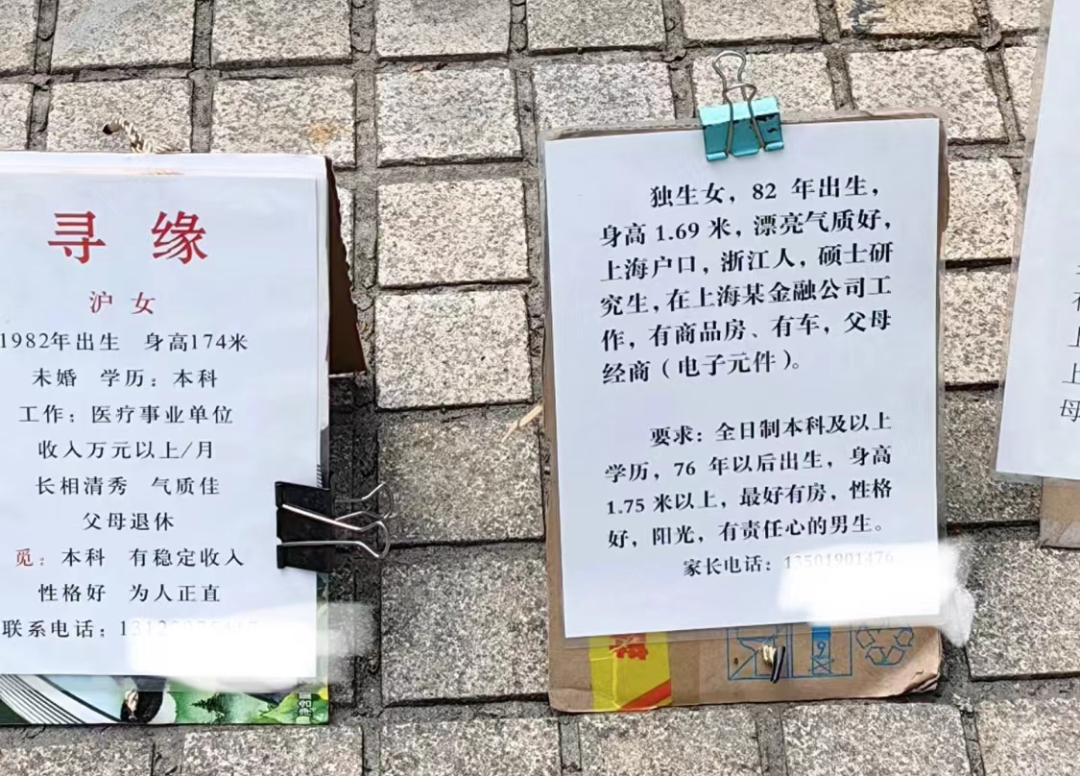 寻 缘
沪 女
1982年出生 身高174米
未婚 学历：本科
工作：医疗事业单位
收入万元以上/月
长相清秀 气质佳
父母退休
觅：本科 有稳定收入
性格好 为人正直
联系电话：
独生女，82 年出生，
身高 1.69 米，漂亮气质好，
上海户口，浙江人，硕士研
究生，在上海某金融公司工
作，有商品房、有车，父母
经商（电子元件）。
要求：全日制本科及以上
学历，76 年以后出生，身高
1.75 米以上，最好有房，性格
好，阳光，有责任心的男生。
家长电话：
上
母